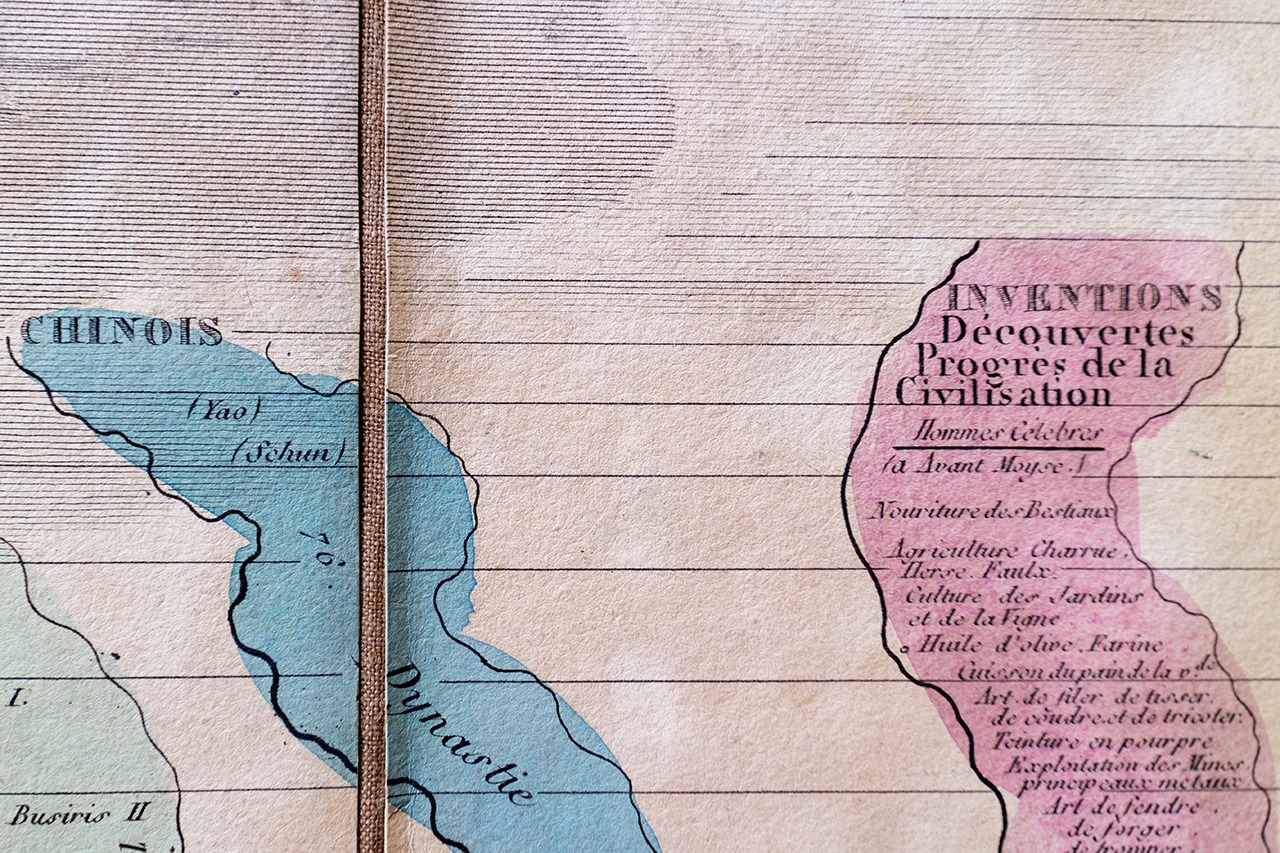 CHINOIS
(Yao)
(Schun)
Dynastie
I.
Busiris II
INVENTIONS
Découvertes
Progrès de la
Civilisation
Hommes Célèbres
(a Avant Moyse.)
Nouriture des Bestiaux
Agriculture Charrue.
Herse. Faulx.
Culture des Jardins
et de la Vigne
Huile d'olive. Farine
Cuisson du pain de la v.de
Art de filer de tisser.
de coudre et de tricoter.
Teinture en pourpre
Exploitation des Mines
principeaux metaux
Art de fendre.
de forger.
de tromper.